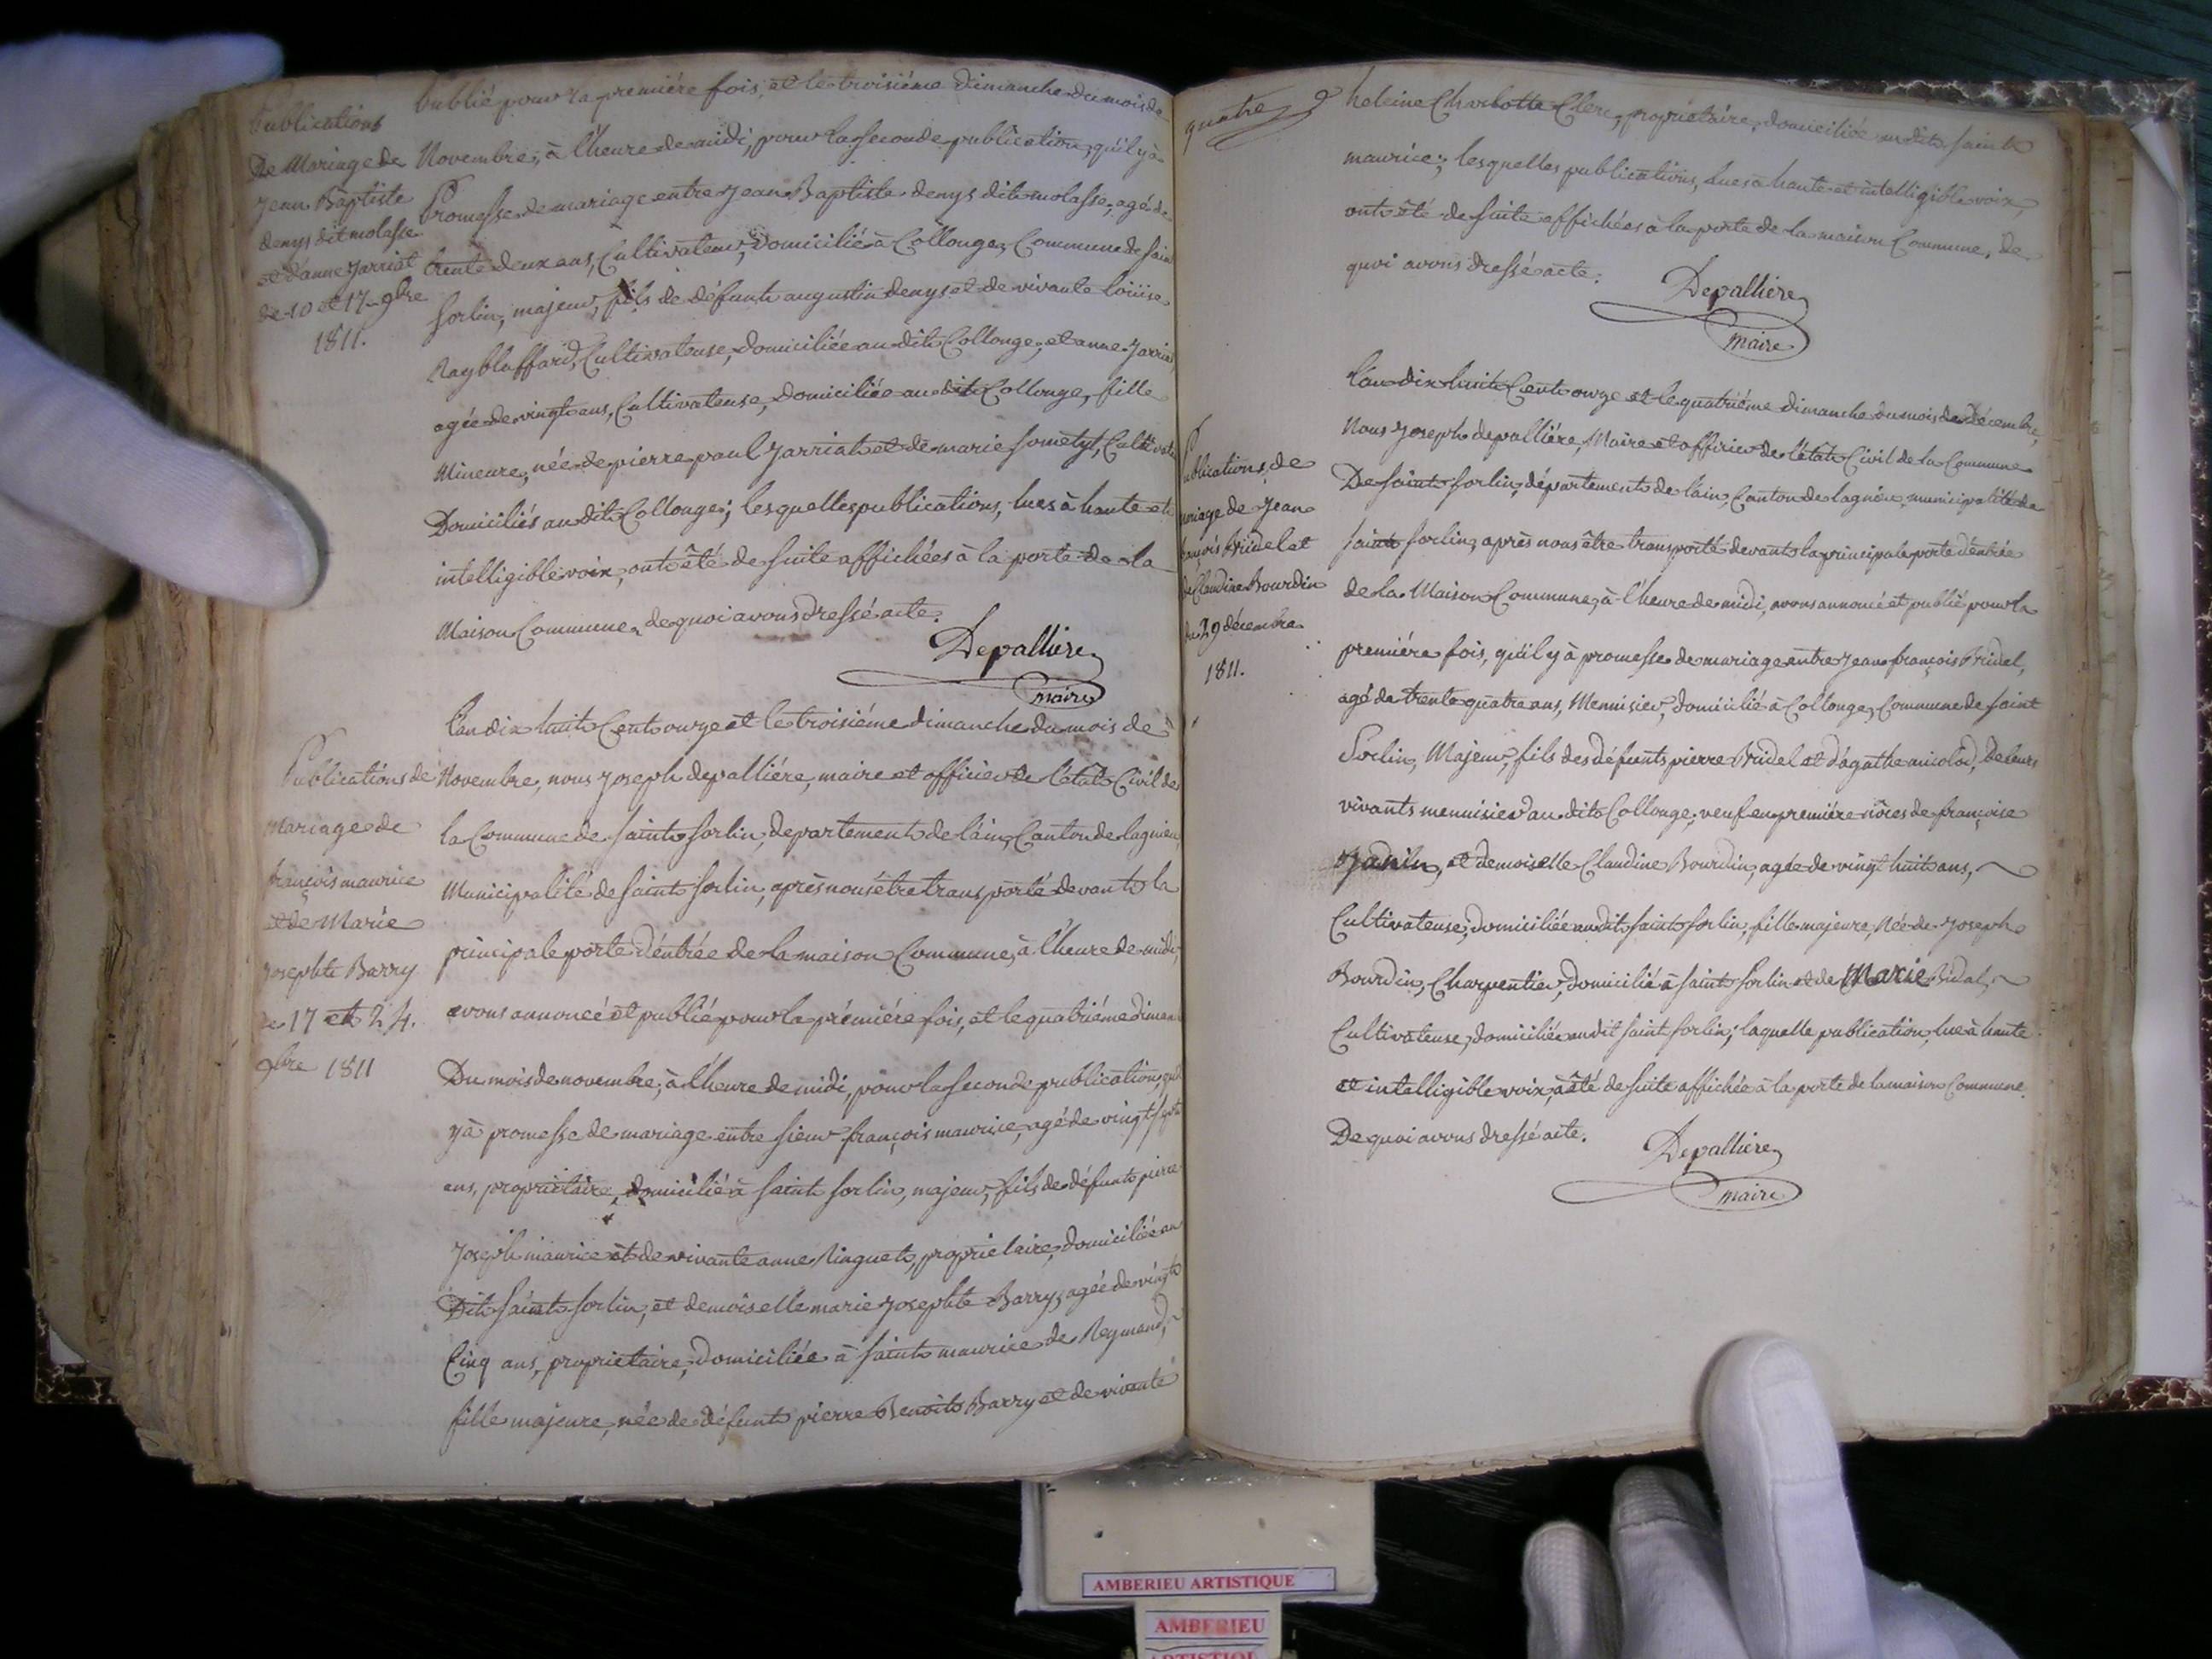 Publications
De Mariage de
Jean Baptiste
denys dit molasse
et d'anne Jarriat
de 10 et 17 9bre
1811.
publié pour la première fois, et le troisiéme dimanche du mois de
Novembre, à l'heure de midi, pour la seconde publication, qu'il y à
Promesse de mariage entre Jean Baptiste denys dit molasse, agé de
trente deux ans, Cultivateur, Domicilié à Collonge, Commune de Saint
Sorlin, majeur, fils de défunt augustin denys et de vivante Loüise
Cultivateuse, domiciliée au dit Collonge, et anne Jarriat
agée de vingt ans, Cultivateuse, Domiciliée au dit Collonge, fille
Mineure, née de pierre paul Jarriat et de marie
Domiciliés au dit Collonge; lesquelles publications, lues à haute et
intelligible voix, ont été de suite affichées à la porte de la
Maison Commune, de quoi avons dressé acte.
Depalliere
maire
Publications de
Mariage de
françois maurice
et de Marie
Josephte Barry
de 17 et 24.
9bre 1811
L'an dix huit Cent onze et le troisiéme dimanche du mois de
Novembre, nous Joseph depalliére, maire et officier de l'état Civil de
la Commune de Saint Sorlin, departement de l'ain, Canton de lagnieu,
Municipalité de Saint Sorlin, après nous être transporté devant la
principale porte d'entrée de la maison Commune, à l'heure de midi,
avons annoncé et publié pour la première fois, et le quatriéme diman
Du mois de novembre, à l'heure de midi, pour la seconde publication, qu'il
y à promesse de mariage entre sieur françois maurice, agé de vingt sept
ans, propriétaire, domicilié à Saint Sorlin, majeur, fils de défunt pierre
Joseph maurice et de vivante anne Ringuet, propriétaire, domiciliée au
Dit Saint Sorlin, et demoiselle marie Josephte Barry, agée de vingt
Cinq ans, propriétaire, domiciliée à Saint maurice de Reymand,
fille majeure, née de défunt pierre Benoit Barry et de vivante
quatre
heleine Charlotte Clerc, propriétaire, domiciliée au dit Saint
maurice; lesquelles publications, lues à haute et intelligible voix,
ont été de suite affichées à la porte de la maison Commune, de
quoi avons dressé acte.
Depalliere
maire
Publications de
mariage de Jean
françois Bridel et
de Claudine Bourdin
du 29 décembre
1811.
L'an dix huit Cent onze et le quatriéme dimanche du mois de Décembre,
Nous Joseph depalliére, Maire et officier de l'état Civil de la Commune
De Saint Sorlin, département de l'ain, Canton de lagnieu, municipalité de
Saint Sorlin, après nous être transporté devant la principale porte d'entrée
de la Maison Commune, à l'heure de midi, avons annoncé et publié pour la
première fois, qu'il y à promesse de mariage entre Jean françois Bridel,
agé de trente quatre ans, Menuisier, domicilié à Collonge, Commune de Saint
Sorlin, Majeur, fils des défunts pierre Bridel et d'agathe micolod, de leurs
vivants menuisier au dit Collonge, veuf en première nôces de françoise
Janin, et demoiselle Claudine Bourdin, agée de vingt huit ans,
Cultivateuse, domiciliée au dit Saint Sorlin, fille majeure, Née de Joseph
Bourdin, Charpentier, domicilié à Saint Sorlin et de Marie Vidal,
Cultivateuse, domiciliée au dit Saint Sorlin; laquelle publication, lue à haute
et intelligible voix, à été de suite affichée à la porte de la maison Commune.
De quoi avons dressé acte.
Depalliere
maire
AMBERIEU ARTISTIQUE
AMBERIEU
ARTISTIQUE